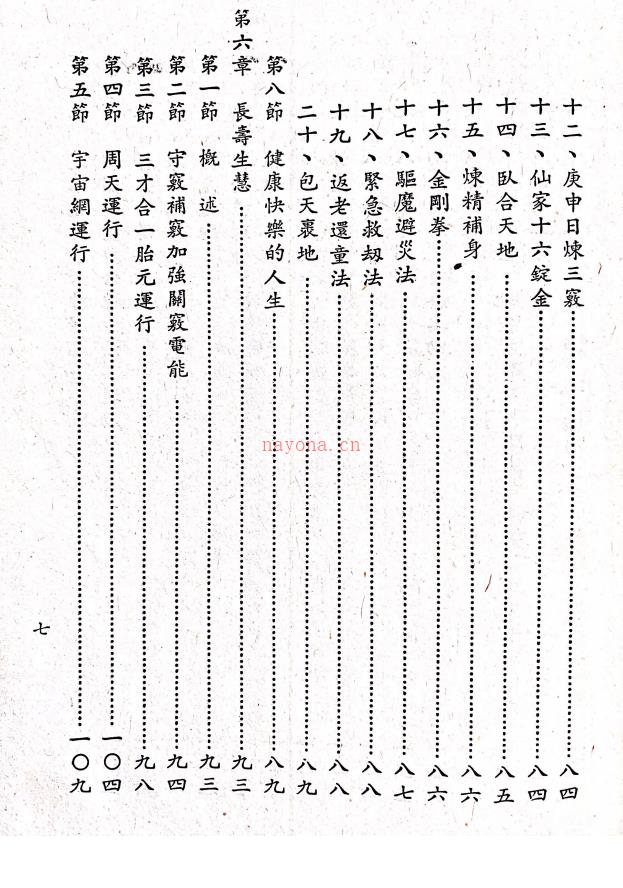 十二、庚申日煉三竅……八四
十三、仙家十六錠金……八四
十四、臥合天地……八五
十五、煉精補身……八六
十六、金剛拳……八六
十七、驅魔避災法……八七
十八、緊急救劫法……八八
十九、返老還童法……八八
二十、包天裹地……八九
第八節 健康快樂的人生……八九
第六章 長壽生慧……九三
第一節 概述……九三
第二節 守竅補竅加強關竅電能……九四
第三節 三才合一胎元運行……九八
第四節 周天運行……一〇四
第五節 宇宙網運行……一〇九
七
nayona.cn